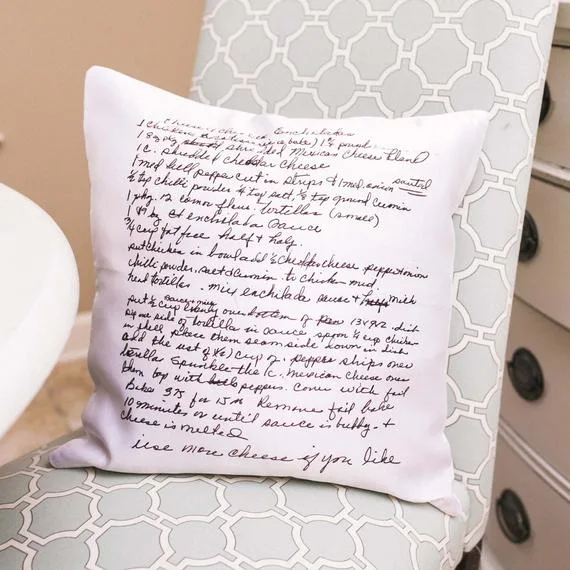 Enchiladas
1 chicken (bake) 1 1/2 pound
1 8oz pkg shredded Mexican cheese blend
1 C. shredded cheddar cheese
1 med bell pepper cut in strips & 1 med. onion sauted
1/2 tsp chilli powder 1/4 tsp salt, 1/8 tsp ground cumin
1 pkg. 12 corn flour tortillas (small)
1 enchilada sauce
3/4 cup fat free half & half.
put chicken in bowl add 1/2 cheddar cheese pepper & onion
chilli powder, salt & cumin to chicken mix
heat tortillas. mix enchilada sauce & milk
put 1/2 cup sauce mix evenly over bottom of 13x9x2 dish
Dip one side of tortilla in sauce spoon 1/4 cup chicken
in shell place them seam side down in dish
and the rest of cup of pepper strips over
tortilla Sprinkle the 1 c. Mexican cheese over
them top with peppers. Cover with foil
Bake 375° for 15 m Remove foil bake
10 minutes or until sauce is bubbly &
cheese is melted
use more cheese if you like